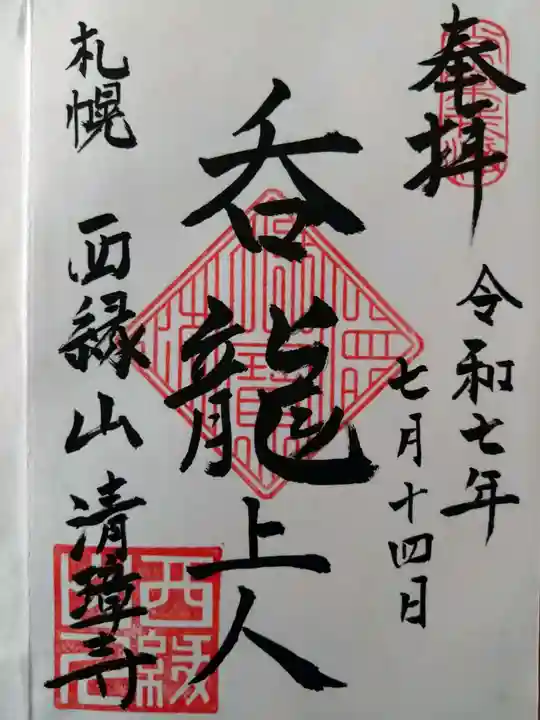 奉拝
令和七年
七月十四日
呑龍上人
札幌 西縁山 清璋寺